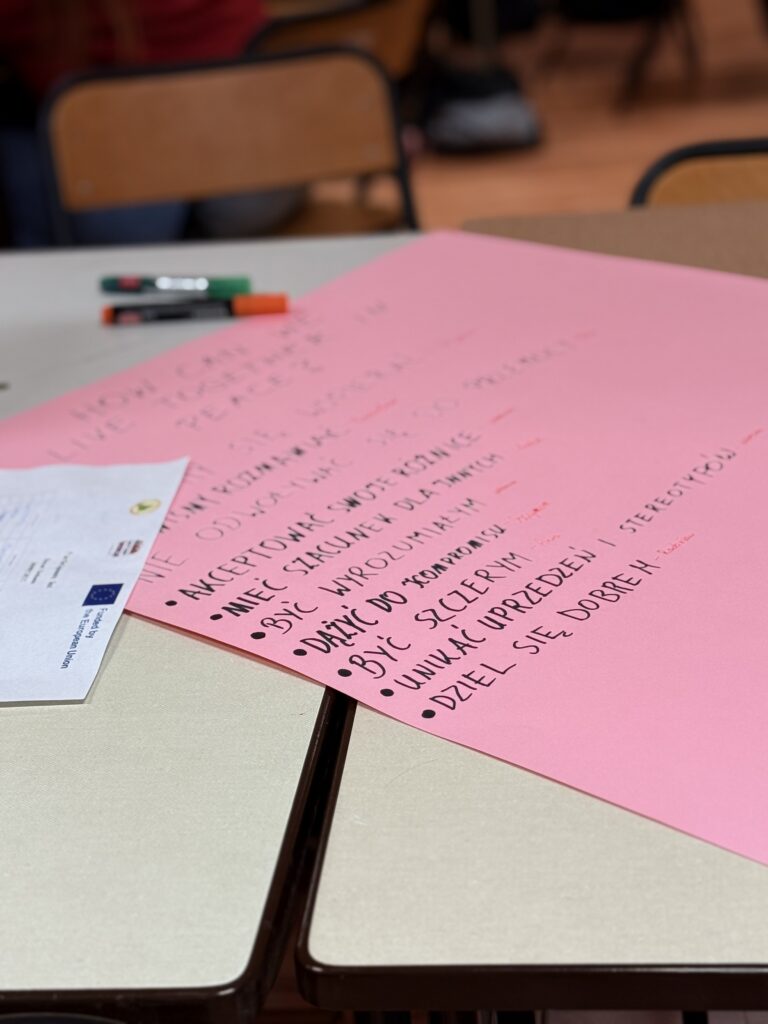 HOW CAN WE
LIVE TOGETHER IN
PEACE?
SIĘ WSPIERAĆ
ROZMAWIAĆ
NIE ODWOŁYWAĆ SIĘ DO PRZEMOCY
• AKCEPTOWAĆ SWOJE RÓŻNICE
• MIEĆ SZACUNEK DLA INNYCH
• BYĆ WYROZUMIAŁYM
• DĄŻYĆ DO KOMPROMISU
• BYĆ SZCZERYM
• UNIKAĆ UPRZEDZEŃ I STEREOTYPÓW
• DZIEL SIĘ DOBREM
Funded by
the European Union